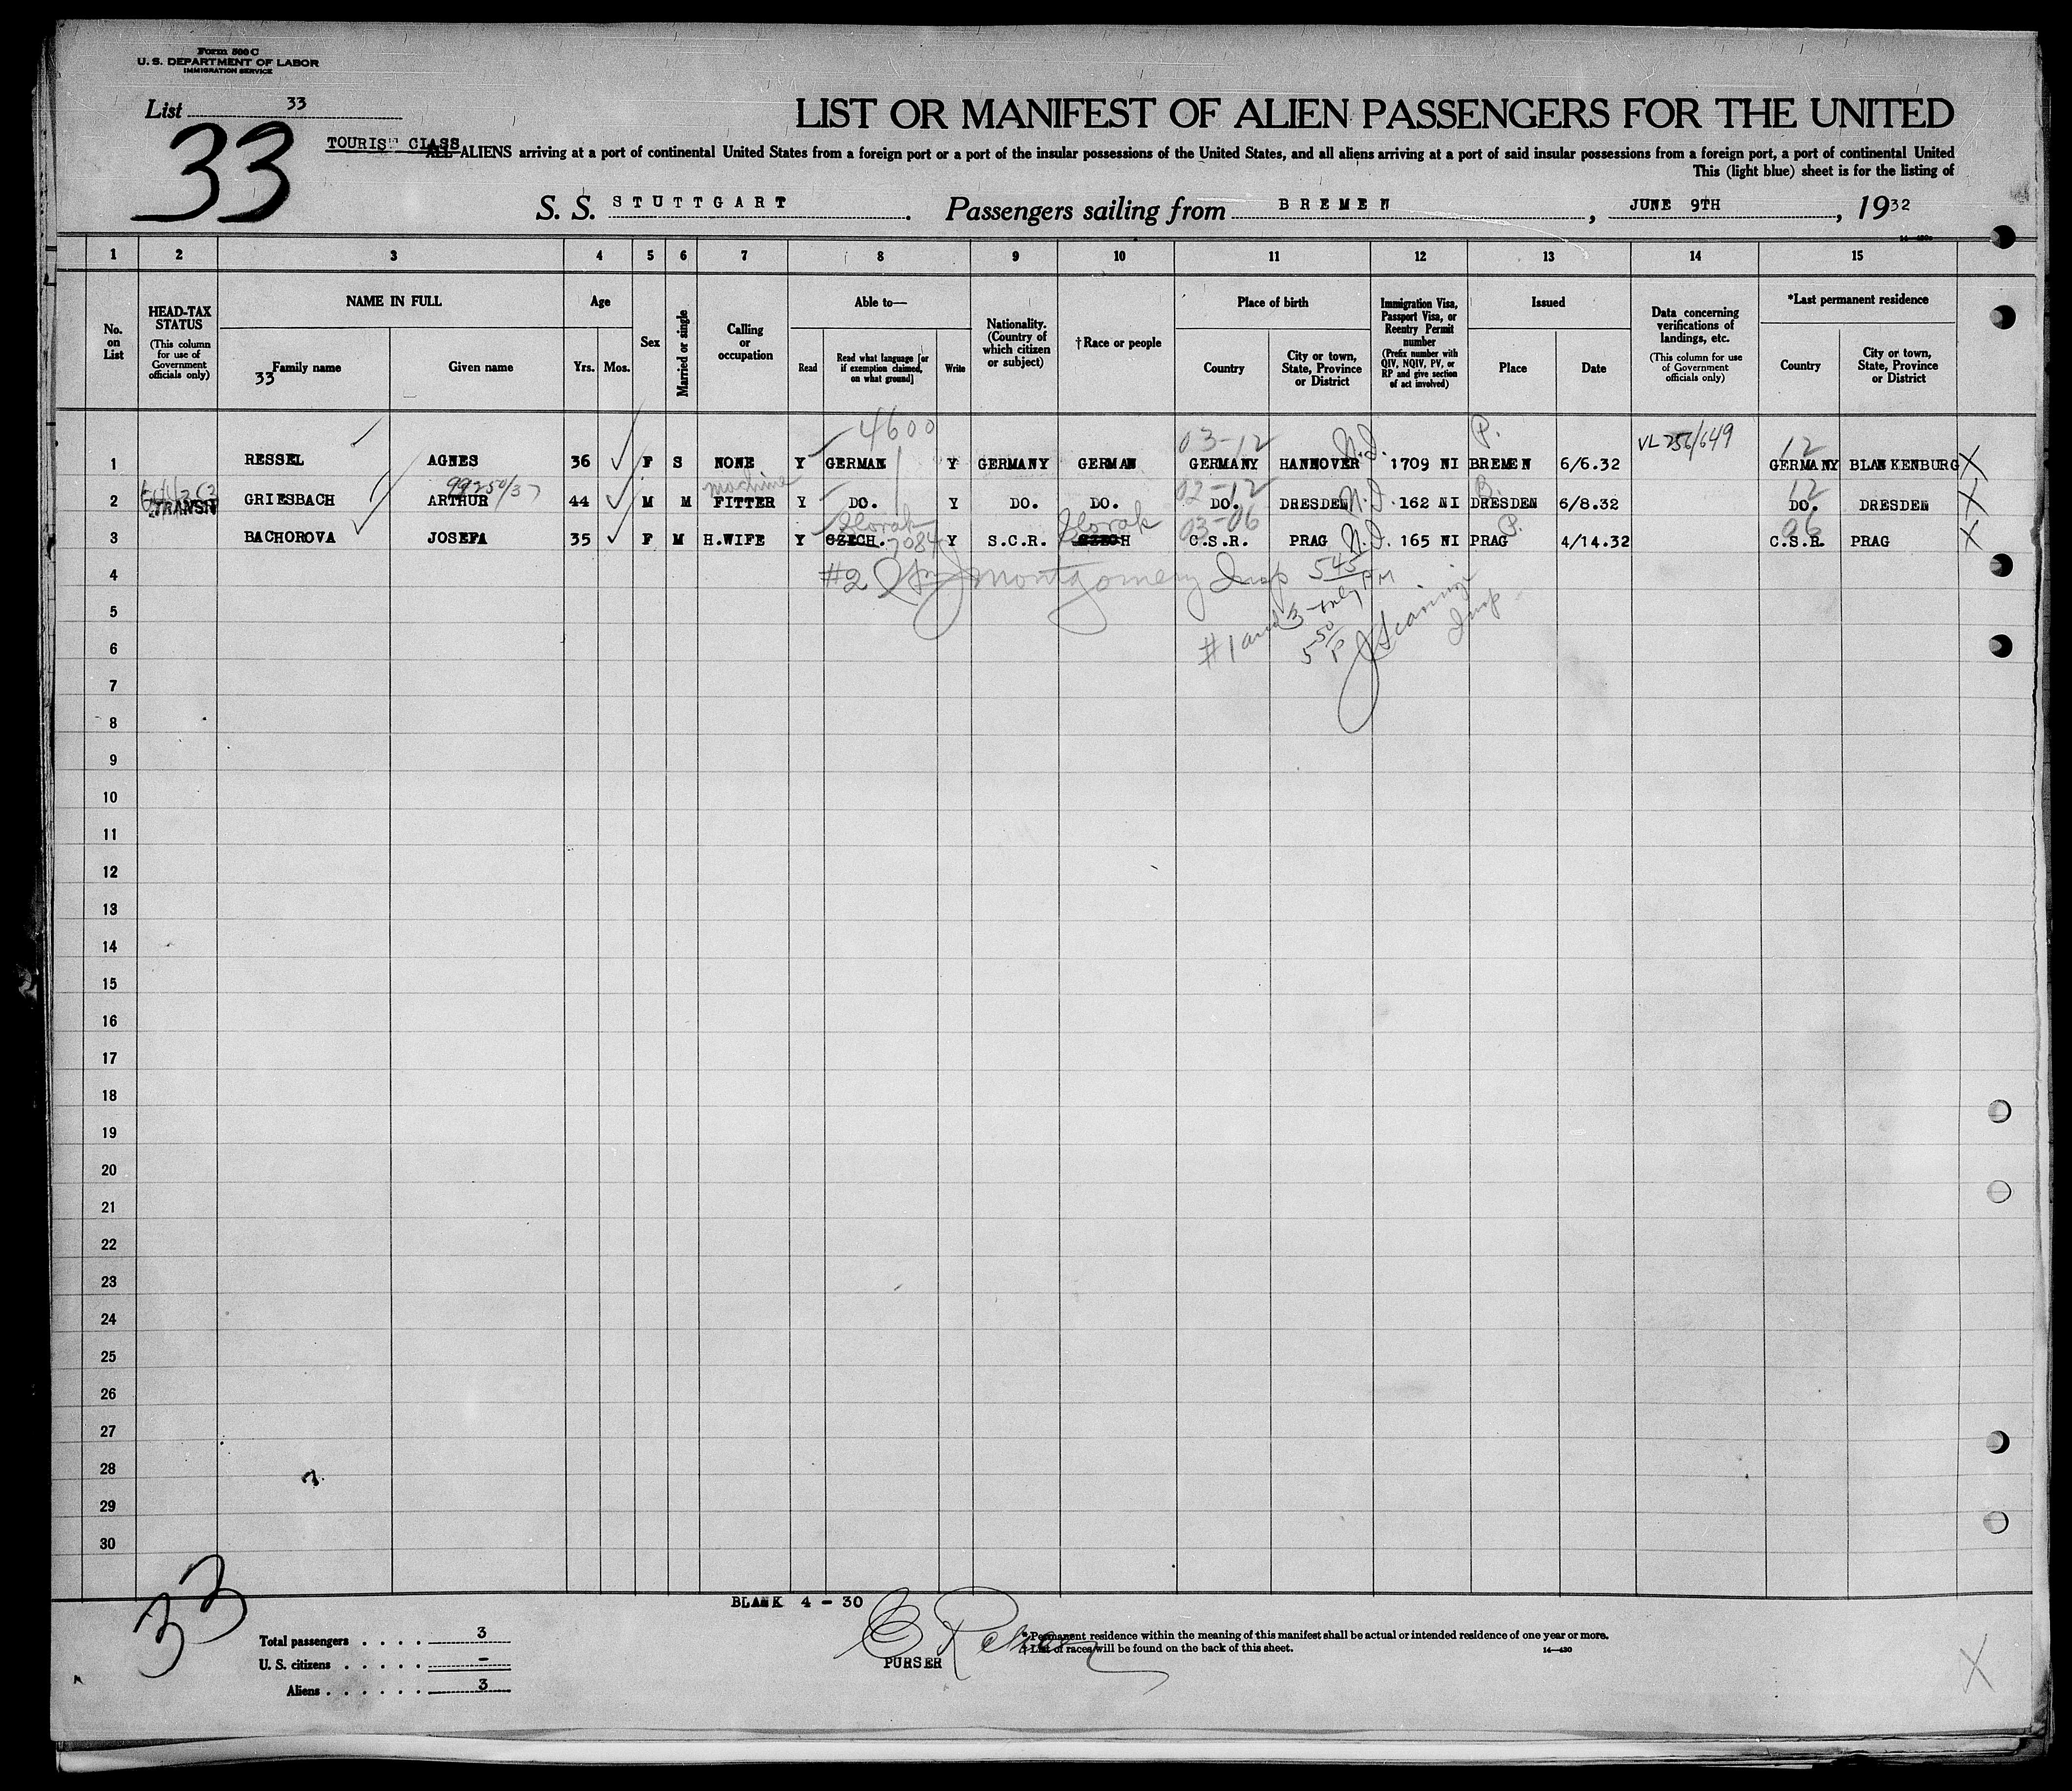 Form 500 C
U. S. DEPARTMENT OF LABOR
IMMIGRATION SERVICE
List 33
33
LIST OR MANIFEST OF ALIEN PASSENGERS FOR THE UNITED
TOURIST CLASS
ALL ALIENS arriving at a port of continental United States from a foreign port or a port of the insular possessions of the United States, and all aliens arriving at a port of said insular possessions from a foreign port, a port of continental United
This (light blue) sheet is for the listing of
S. S. STUTTGART. Passengers sailing from BREMEN, JUNE 9TH, 1932
1 2 3 4 5 6 7 8 9 10 11 12 13 14 15
No. on List
HEAD-TAX STATUS (This column for use of Government officials only)
NAME IN FULL
Family name
33
Given name
Age
Yrs. Mos.
Sex
Married or single
Calling or occupation
Able to—
Read
Read what language [or if exemption claimed, on what ground]
Write
Nationality. (Country of which citizen or subject)
†Race or people
Place of birth
Country
City or town, State, Province or District
Immigration Visa, Passport Visa, or Reentry Permit number (Prefix number with QIV, NQIV, PV, or RP and give section of act involved)
Issued
Place
Date
Data concerning verifications of landings, etc. (This column for use of Government officials only)
*Last permanent residence
Country
City or town, State, Province or District
4600 03-12 N.I. P. VL 256/649 12
1 RESSEL AGNES 36 F S NONE Y GERMAN Y GERMANY GERMAN GERMANY HANNOVER 1709 NI BREMEN 6/6.32 GERMANY BLANKENBURG X
99250/37 machine 02-12 N.I. 12
2 TRANSIT GRIESBACH ARTHUR 44 M M FITTER Y DO. Y DO. DO. DO. DRESDEN 162 NI DRESDEN 6/8.32 DO. DRESDEN X
Slovak 7084 Slovak 03-06 N.I. P. 06
3 BACHOROVA JOSEFA 35 F M H.WIFE Y CZECH. Y S.C.R. CZECH C.S.R. PRAG 165 NI PRAG 4/14.32 C.S.R. PRAG X
4 #2 Montgomery Insp 545 PM
5 #1 and 3 only
6 5 50 P Insp
7
8
9
10
11
12
13
14
15
16
17
18
19
20
21
22
23
24
25
26
27
28
29
30
33
BLANK 4 - 30
Total passengers . . . . 3
U. S. citizens . . . . . -
Aliens . . . . . . 3
PURSER
* Permanent residence within the meaning of this manifest shall be actual or intended residence of one year or more.
† List of races will be found on the back of this sheet.
14—430
X